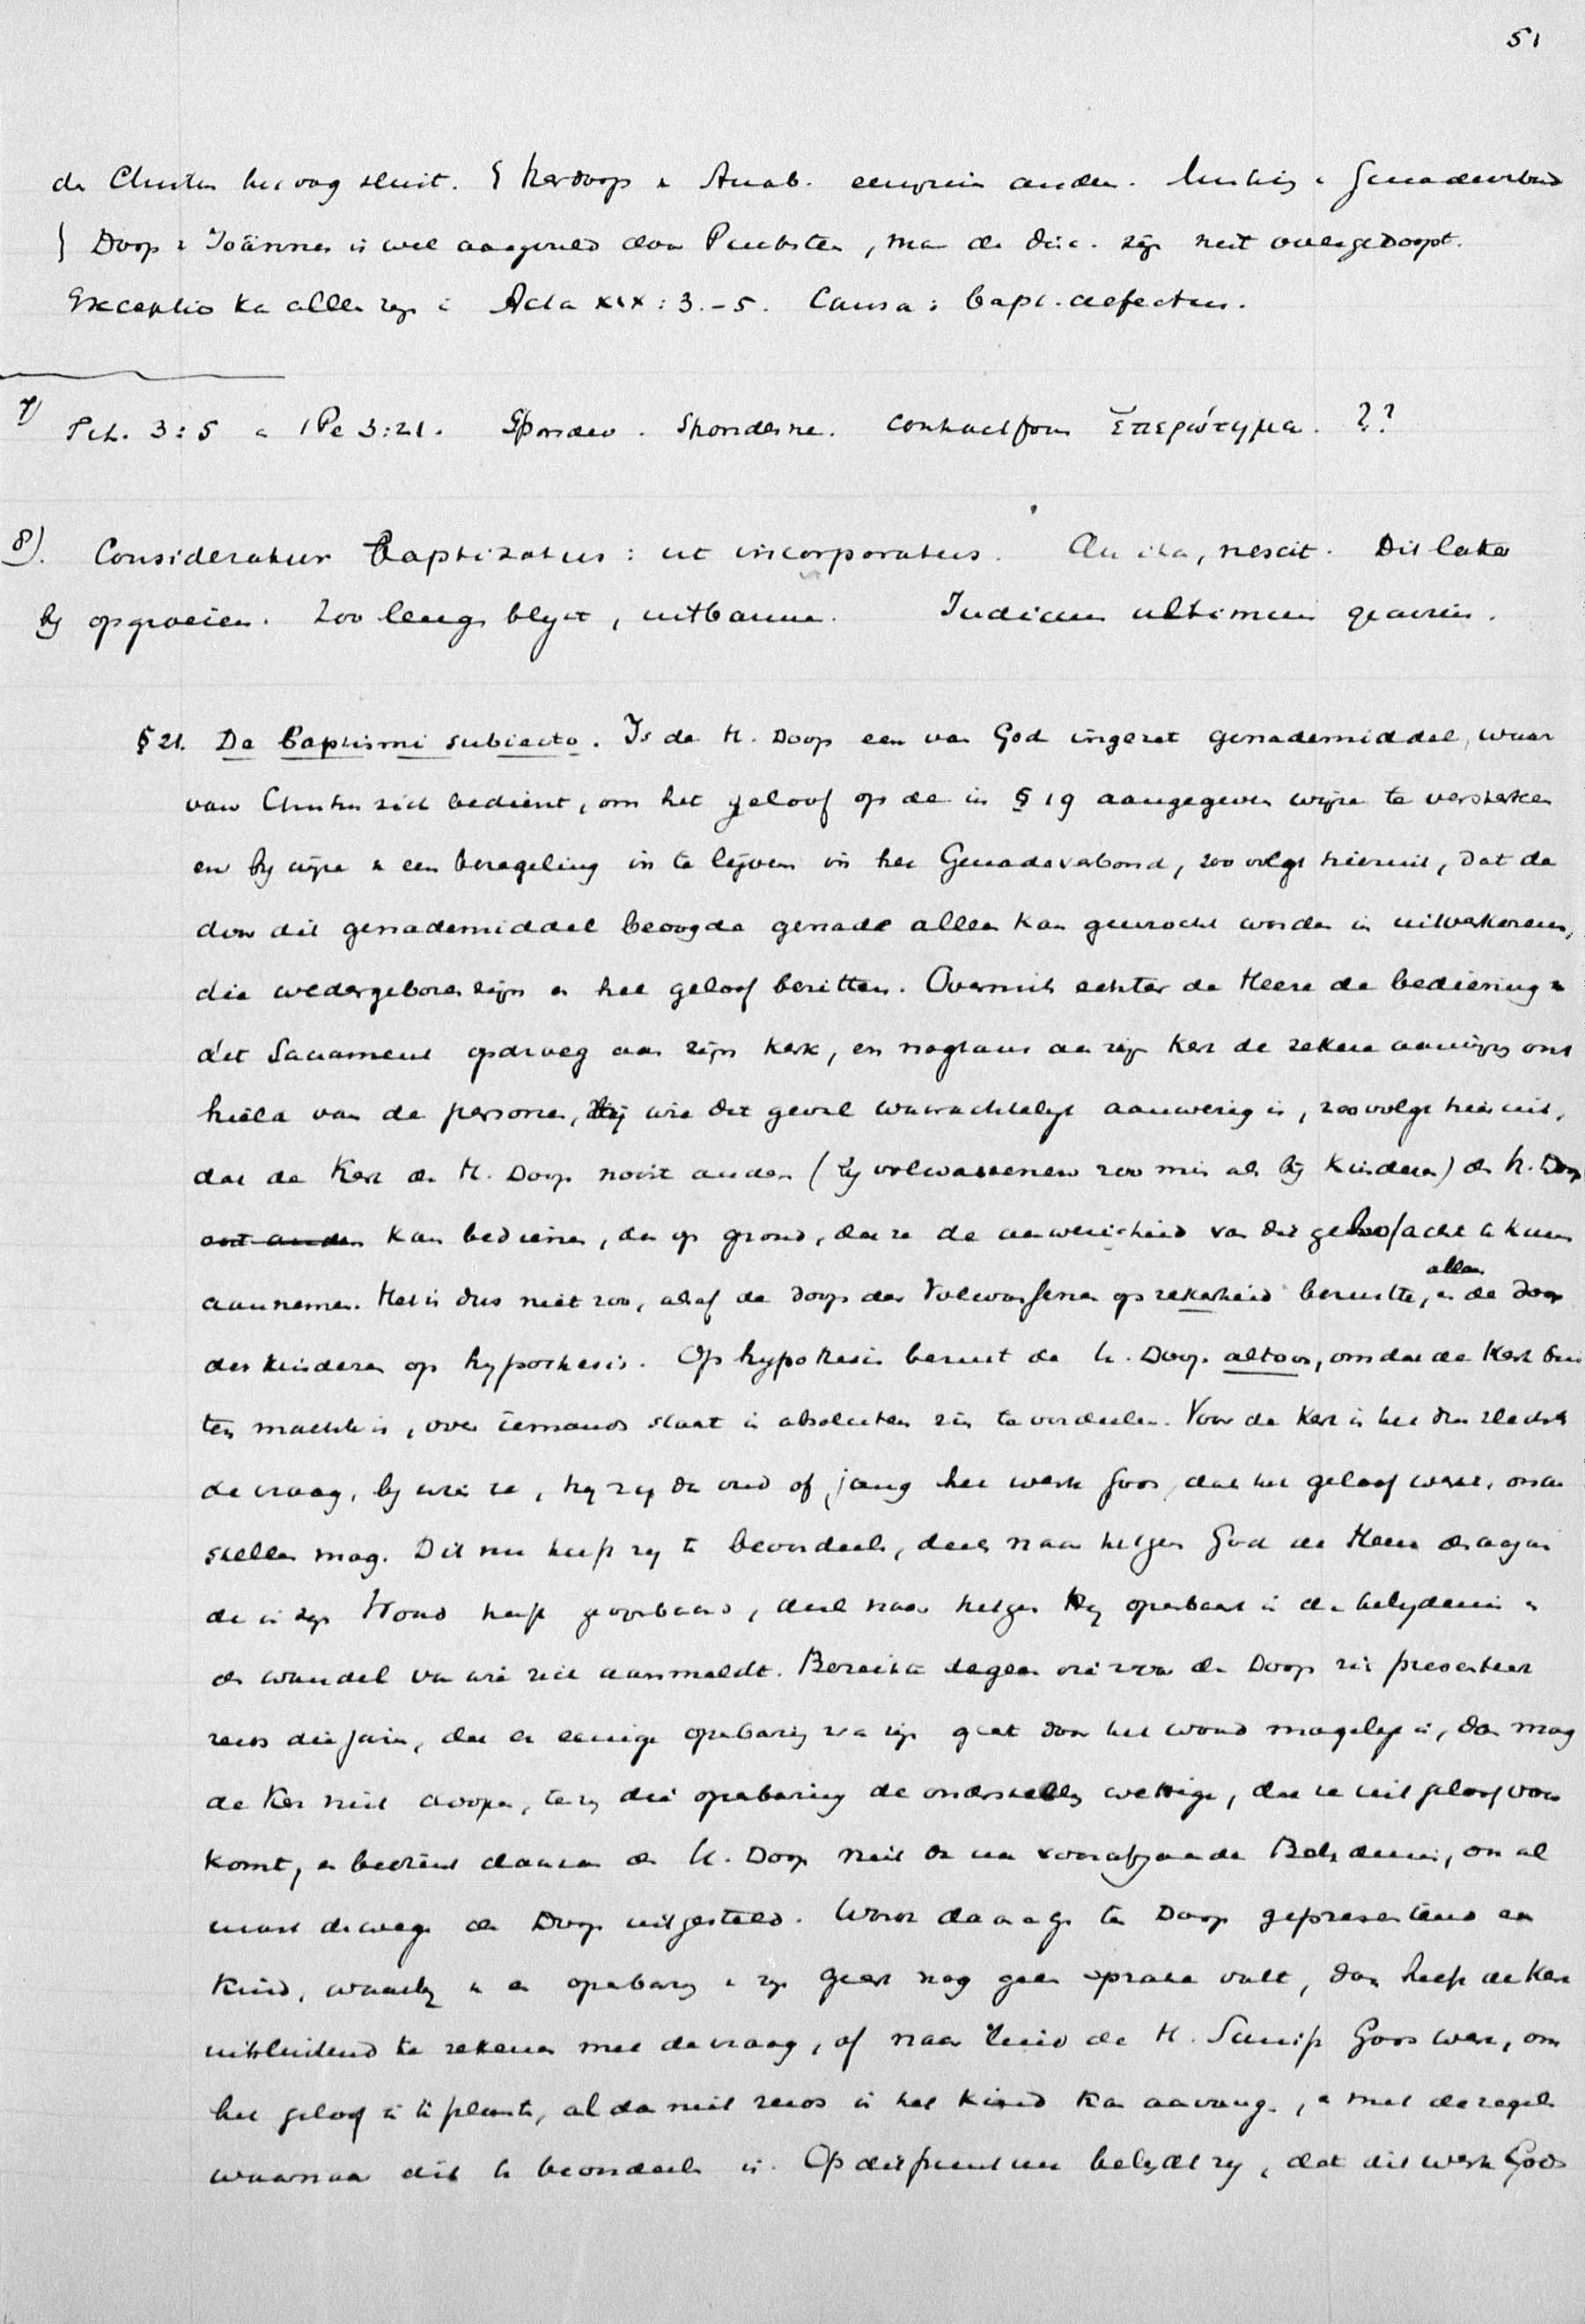 51
de Christen hieroog sluit. § herdoop v. Anab. anders. Genadeverbond
Doop v. Joännes is wel aangevuld door Pinksten, maar de disc. zijn niet overgedoopt.
Exceptio kan alleen zijn in Acta XIX: 3.-5. Causa: bapt. defectus.
7) Tit. 3:5 en 1 Pe 3:21. Spondeo. Spondesne. contractform ἐπερώτημα. ??
8). Consideratur Baptizatus: ut incorporatus. An ita, nescit. Dit later
bij opgroeien. Zoo lang blijkt, uitbannen. Iudicium ultimum
§ 21. De Baptismi subiecto. Is de H. Doop een van God ingezet genademiddel, waar
van Christus zich bedient, om het geloof op de in § 19 aangegeven wijze te versterken
en bij wijze v. een bezegeling in te lijven in het Genadeverbond, zoo volgt hieruit, dat de
door dit genademiddel beoogde genade alleen kan gewrocht worden in uitverkorenen,
die wedergeboren zijn en het geloof bezitten. Overmits echter de Heere de bediening v.
dit Sacrament opdroeg aan zijn Kerk, en nogtans aan zijn Kerk de zekere aanwijzing ont
hield van de personen, bij wie dit geval waarachtelijk aanwezig is, zoo volgt hieruit,
dat de Kerk de H. Doop nooit anders (bij volwassenen zoo min als bij kinderen) de H. Doop
kan bedienen, dan op grond, dat ze de aanwezigheid van dit geloof acht te kunnen
aannemen. Het is dus niet zoo, alsof de doop der Volwassenen op zekerheid berustte, en alleen de doop
der kinderen op hypothesis. Op hypothesis berust de H. Doop altoos, omdat de Kerk bui
ten machte is, over iemands staat in absoluten zin te oordeelen. Voor de Kerk is het dus slechts
de vraag, bij wie ze, hij zij dan oud of jong het werk Gods, dat het geloof werkt, onder
stellen mag. Dit nu heeft zij te beoordeelen, deels naar hetgeen God de Heere
de in zijn Woord heeft geopenbaard, deels naar hetgeen Hij openbaart in de belijdenis en
de wandel van wie zich aanmeldt. Bereikte degeen die voor de Doop zich presenteert
reeds die jaren, dat er eenige openbaring van zijn geest door het woord mogelijk is, dan mag
de Kerk niet doopen, tenzij die openbaring de onderstelling wettige, dat ze uit geloof voor
komt, en bedient daarom de H. Doop niet dan na voorafgaande Belijdenis, en al
de Doop uitgesteld. Wordt daarentegen ten Doop gepresenteerd een
kind, waarbij v. een openbaring v. zijn geest nog geen sprake valt, dan heeft de Kerk
uitsluitend te rekenen met de vraag, of naar luid de H. Schrift Gods werk, om
het geloof in te planten, al dan niet reeds in het kind kan aanvangen, en met de regels
waarnaar dit te beoordeelen is. Op dit punt nu belijdt zij, dat dit werk Gods